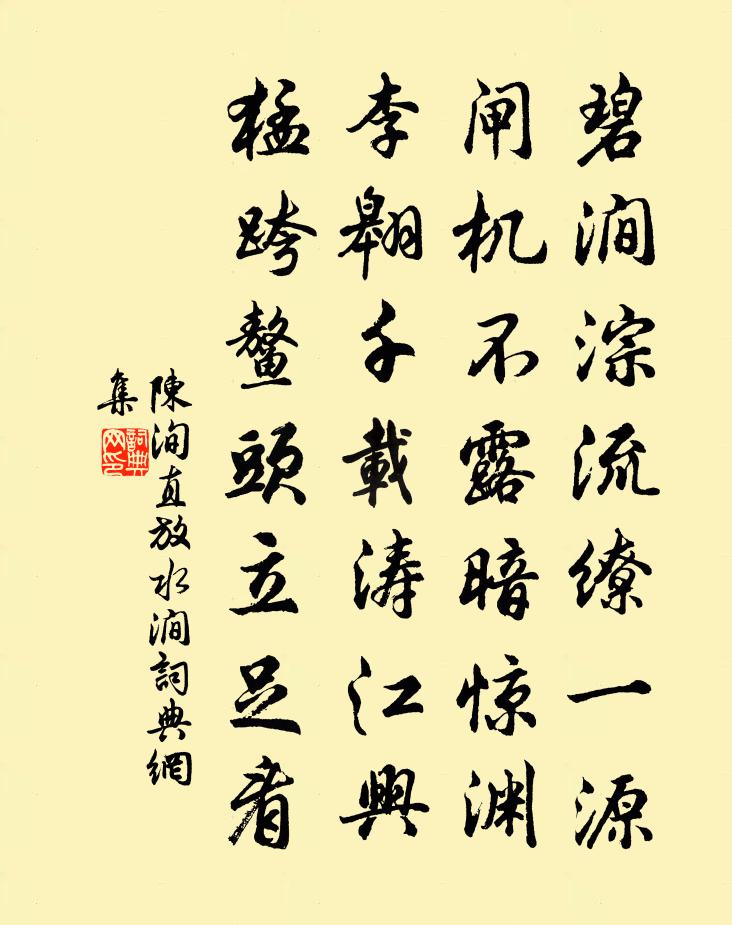 碧涧淙流缭一源
闸机不露暗惊渊
李翱千載涛江興
猛跨鳌頭立足看
陳洵直放水澗詞典網
集
詞典
网印